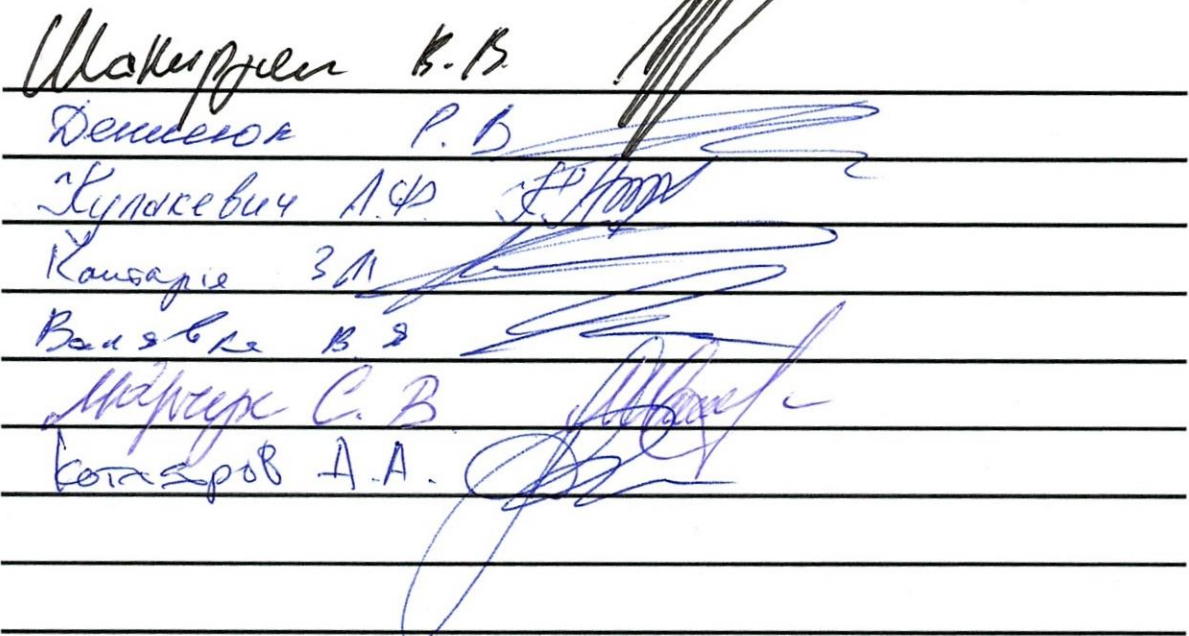 Шакирзян В.В.
Денисюк Р.В
Кулакевич А.Ф.
Контаріє З М
Валявка В.Я
Марчук С.В
Котляров А.А.